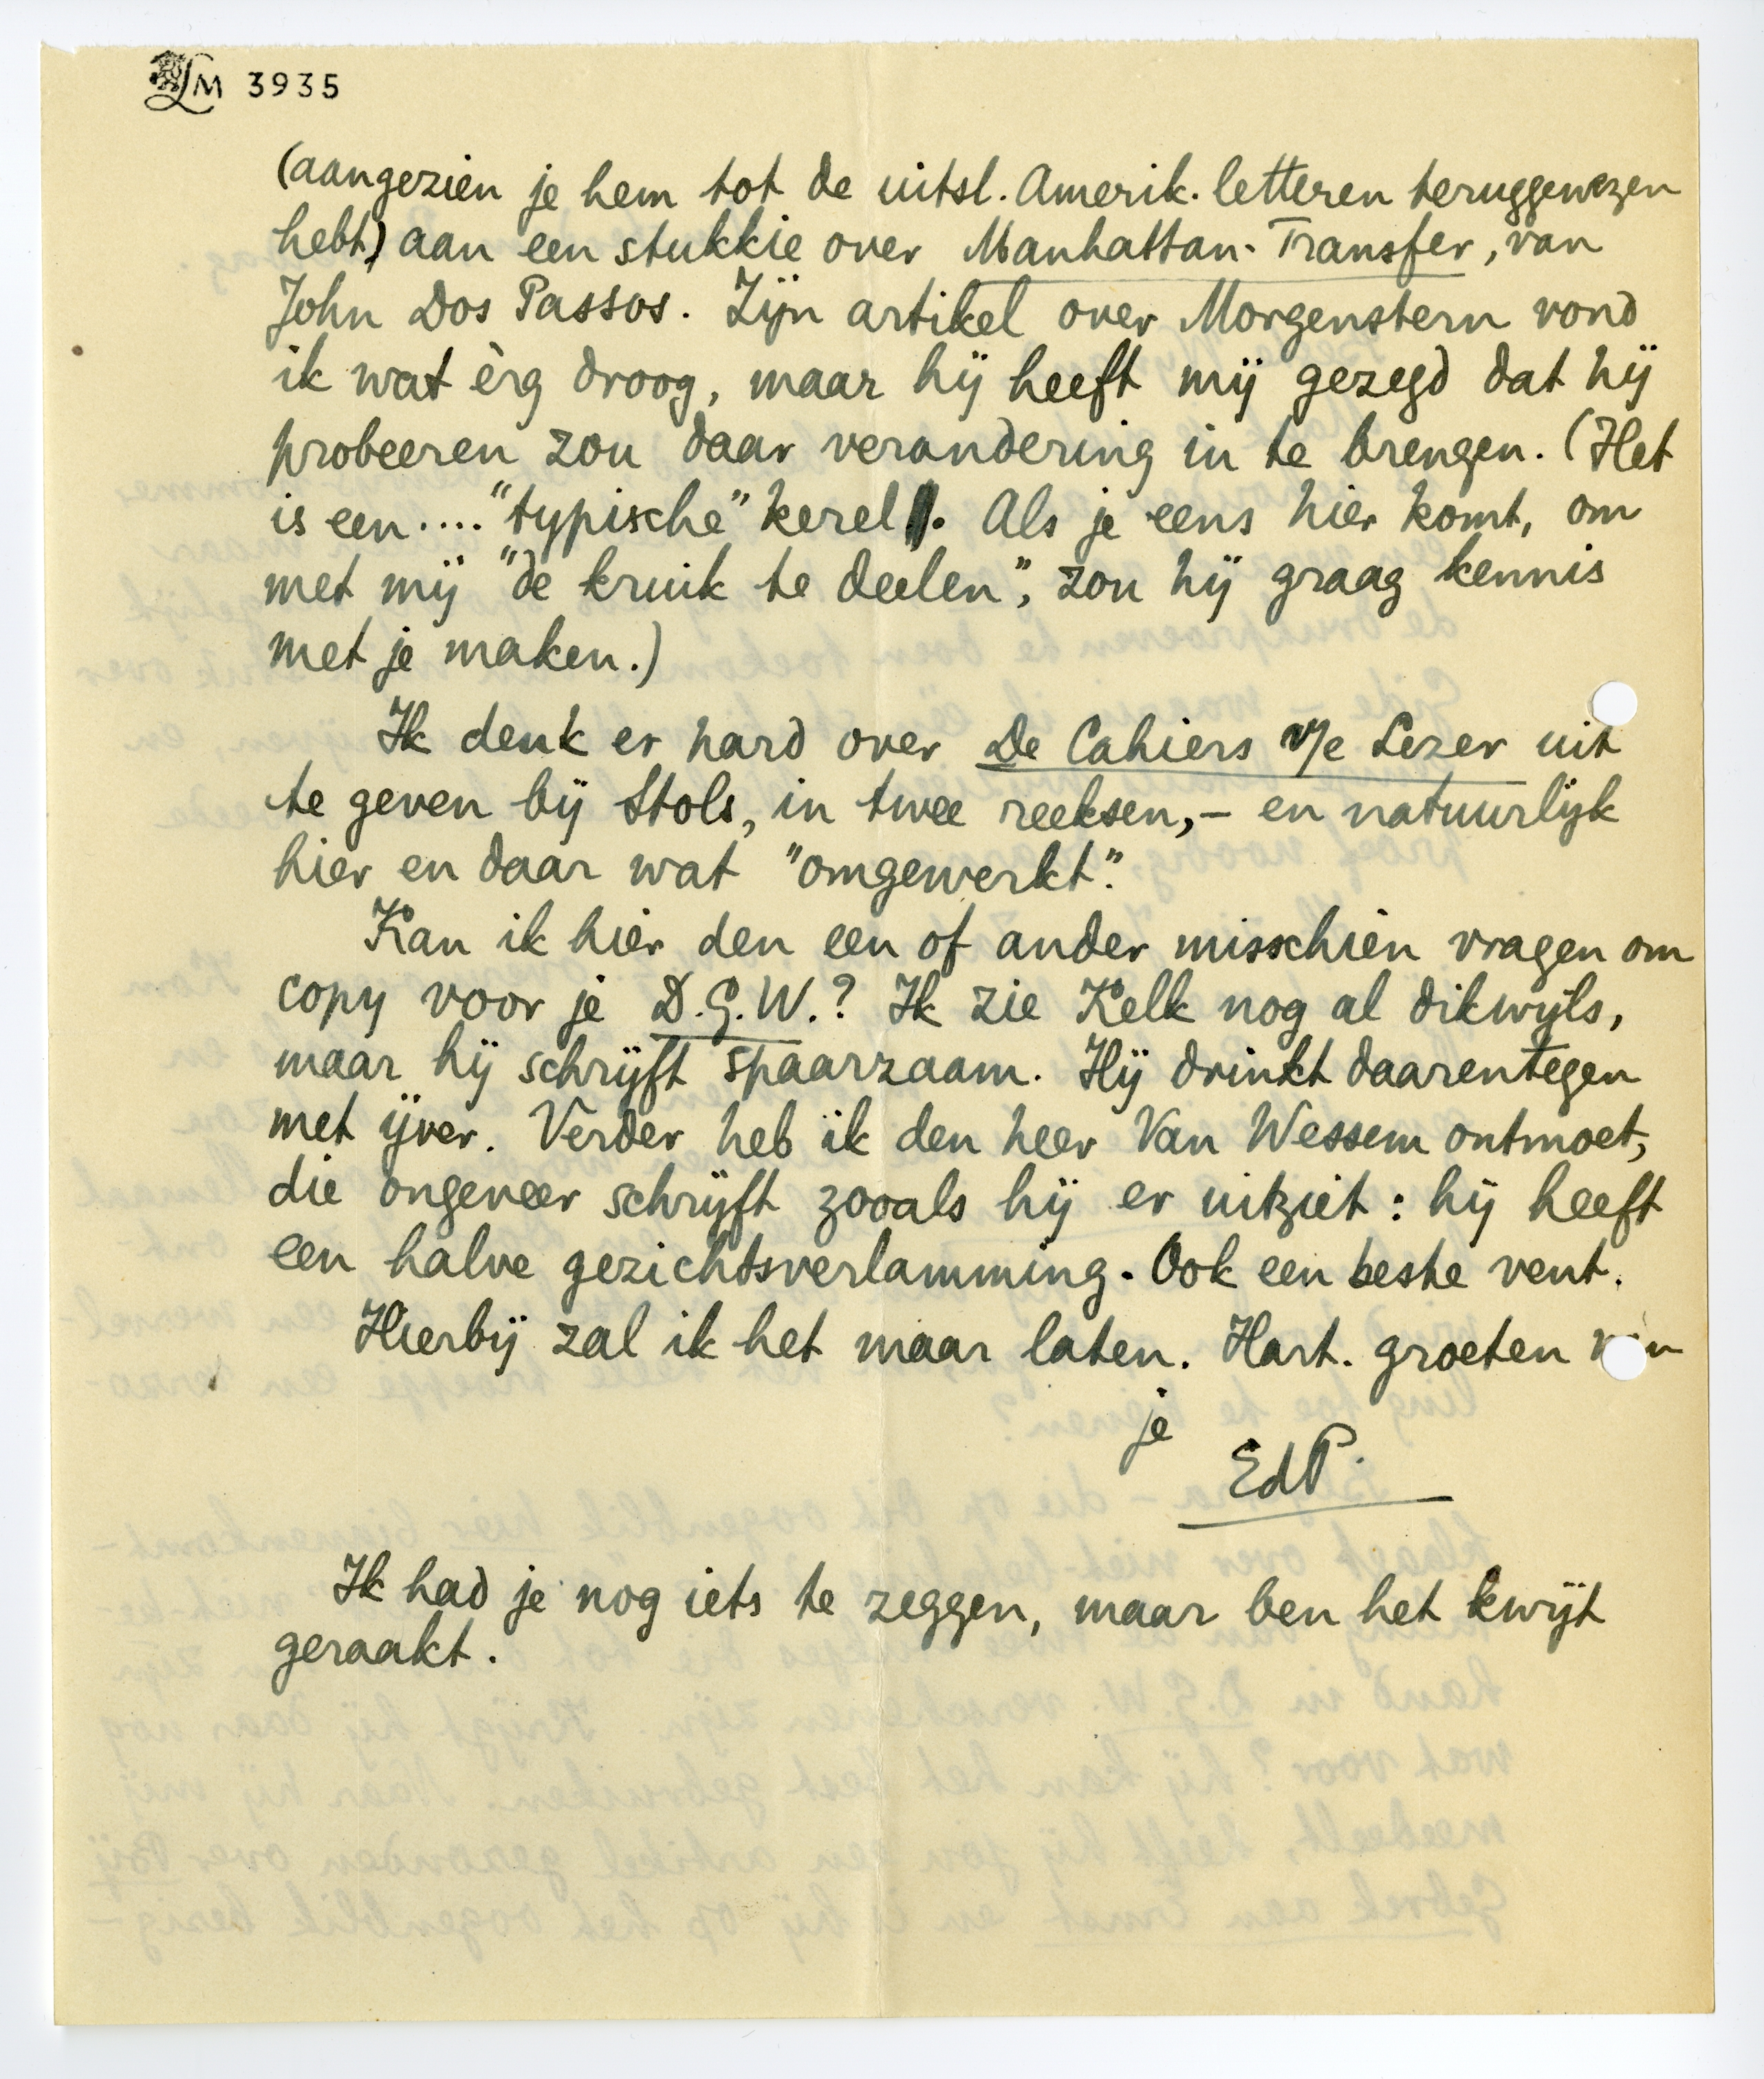 LM 3935
(aangezien je hem tot de uitsl. Amerik. letteren teruggewezen
hebt) aan een stukkie over Manhattan-Transfer, van
John Dos Passos. Zijn artikel over Morgenstern vond
ik wat èrg droog, maar hij heeft mij gezegd dat hij
probeeren zou daar verandering in te brengen. (Het
is een.... "typische" kerel. Als je eens hier komt, om
met mij "de kruik te deelen", zou hij graag kennis
met je maken.)
Ik denk er hard over De Cahiers v/e Lezer uit
te geven bij Stols, in twee reeksen, – en natuurlijk
hier en daar wat "omgewerkt".
Kan ik hier den een of ander misschien vragen om
copy voor je D.G.W.? Ik zie Kelk nog al dikwijls,
maar hij schrijft spaarzaam. Hij drinkt daarentegen
met ijver. Verder heb ik den heer Van Wessem ontmoet,
die ongeveer schrijft zooals hij er uitziet: hij heeft
een halve gezichtsverlamming. Ook een beste vent.
Hierbij zal ik het maar laten. Hart. groeten van
je
EdP.
Ik had je nog iets te zeggen, maar ben het kwijt
geraakt.